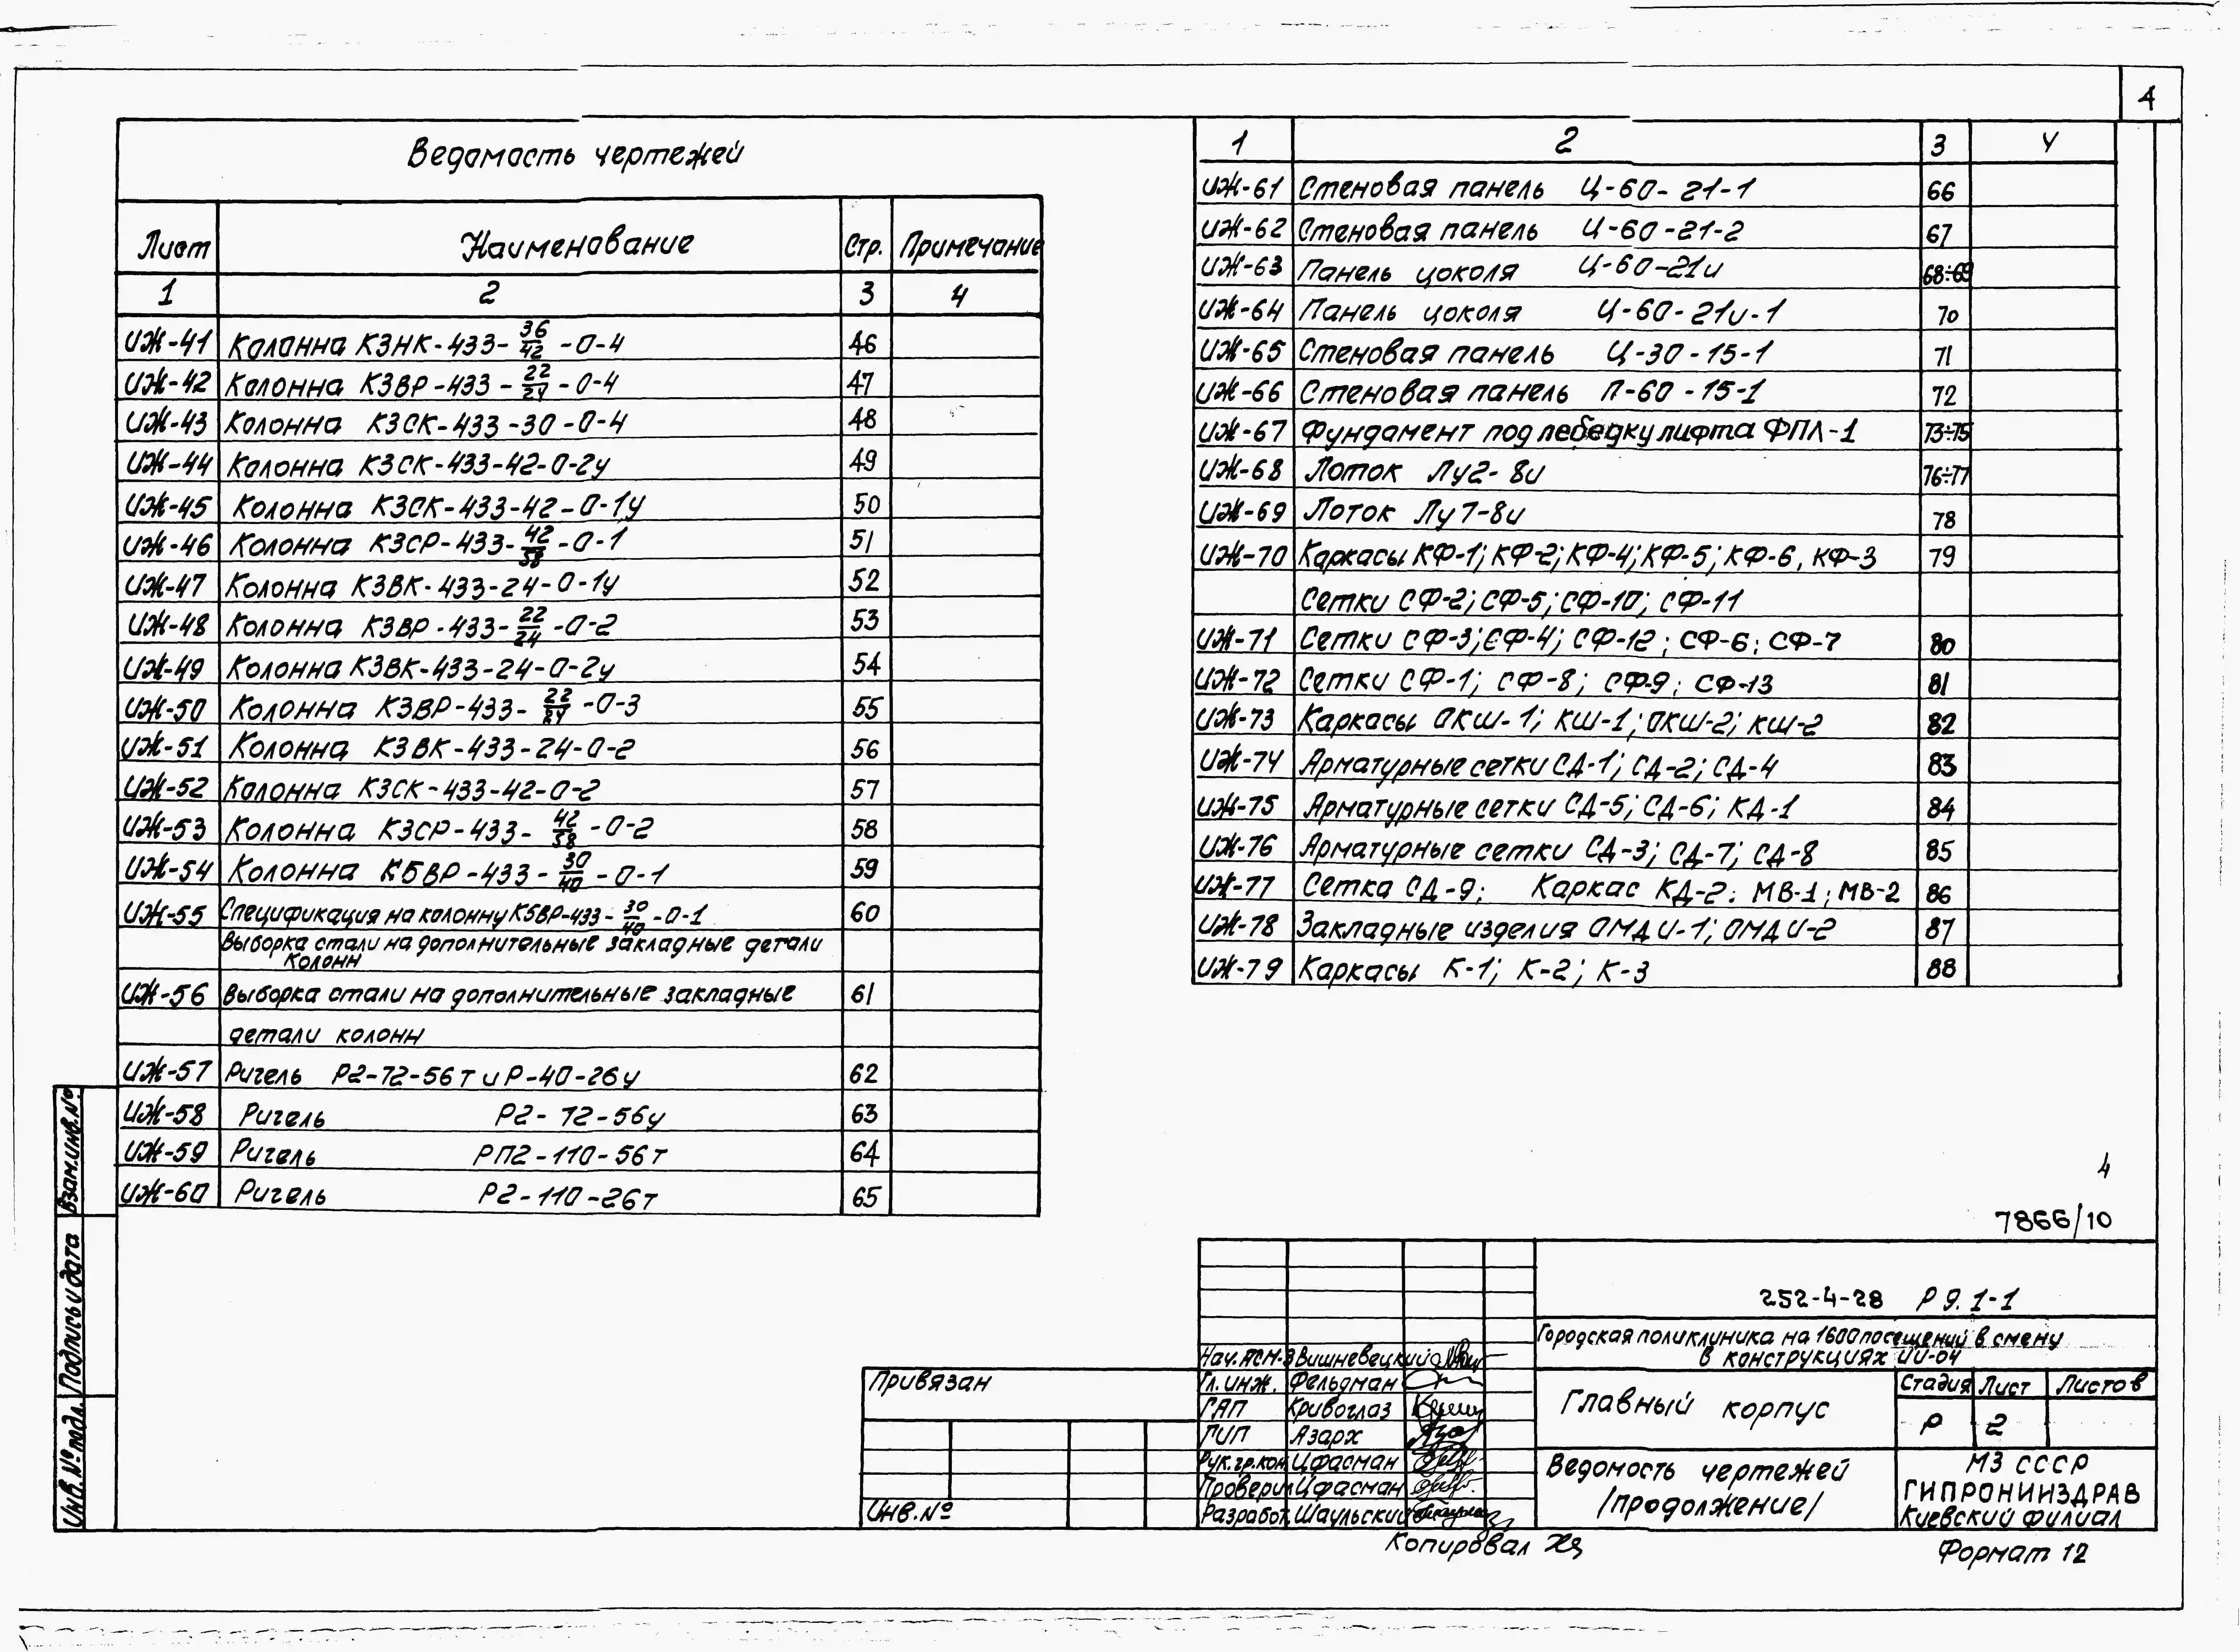 4
Ведомость чертежей
Лист Наименование Стр. Примечание
1 2 3 4
ИЖ-41 Колонна КЗНК-433-36/42-0-4 46
ИЖ-42 Колонна КЗВР-433-22/24-0-4 47
ИЖ-43 Колонна КЗСК-433-30-0-4 48
ИЖ-44 Колонна КЗСК-433-42-0-2у 49
ИЖ-45 Колонна КЗСК-433-42-0-1у 50
ИЖ-46 Колонна КЗСР-433-42/58-0-1 51
ИЖ-47 Колонна КЗВК-433-24-0-1у 52
ИЖ-48 Колонна КЗВР-433-22/24-0-2 53
ИЖ-49 Колонна КЗВК-433-24-0-2у 54
ИЖ-50 Колонна КЗВР-433-22/24-0-3 55
ИЖ-51 Колонна КЗВК-433-24-0-2 56
ИЖ-52 Колонна КЗСК-433-42-0-2 57
ИЖ-53 Колонна КЗСР-433-42/58-0-2 58
ИЖ-54 Колонна КБВР-433-30/40-0-1 59
ИЖ-55 Спецификация на колонну КБВР-433-30/40-0-1 60
Выборка стали на дополнительные закладные детали
колонн
ИЖ-56 Выборка стали на дополнительные закладные 61
детали колонн
ИЖ-57 Ригель Р2-72-56т и Р-40-26у 62
ИЖ-58 Ригель Р2-72-56у 63
ИЖ-59 Ригель РП2-110-56т 64
ИЖ-60 Ригель Р2-110-26т 65
1 2 3 4
ИЖ-61 Стеновая панель Ц-60-21-1 66
ИЖ-62 Стеновая панель Ц-60-21-2 67
ИЖ-63 Панель цоколя Ц-60-21и 68÷69
ИЖ-64 Панель цоколя Ц-60-21и-1 70
ИЖ-65 Стеновая панель Ц-30-15-1 71
ИЖ-66 Стеновая панель П-60-15-1 72
ИЖ-67 Фундамент под лебедку лифта ФПЛ-1 73÷75
ИЖ-68 Лоток Лу2-8и 76÷77
ИЖ-69 Лоток Лу7-8и 78
ИЖ-70 Каркасы КФ-1; КФ-2; КФ-4; КФ-5; КФ-6, КФ-3 79
Сетки СФ-2; СФ-5; СФ-10; СФ-11
ИЖ-71 Сетки СФ-3; СФ-4; СФ-12; СФ-6; СФ-7 80
ИЖ-72 Сетки СФ-1; СФ-8; СФ-9; СФ-13 81
ИЖ-73 Каркасы ОКШ-1; КШ-1; ОКШ-2; КШ-2 82
ИЖ-74 Арматурные сетки СД-1; СД-2; СД-4 83
ИЖ-75 Арматурные сетки СД-5; СД-6; КД-1 84
ИЖ-76 Арматурные сетки СД-3; СД-7; СД-8 85
ИЖ-77 Сетка СД-9; Каркас КД-2; МВ-1; МВ-2 86
ИЖ-78 Закладные изделия ОМДИ-1; ОМДИ-2 87
ИЖ-79 Каркасы К-1; К-2; К-3 88
4
7866/10
252-4-28 Р 9.1-1
Городская поликлиника на 1600 посещений в смену
в конструкциях ИИ-04
Нач. АСМ-3 Вишневецкий
Гл. инж. Фельдман
ГАП Кривоглаз
ГИП Азарх
Рук.гр.кон. Цфасман
Проверил Цфасман
Разработ. Шаульский
Главный корпус
Стадия Лист Листов
Р 2
Ведомость чертежей
/продолжение/
МЗ СССР
ГИПРОНИИЗДРАВ
Киевский филиал
Привязан
Инв.№
Копировал
Формат 12
Взам.инв.№
Подпись и дата
Инв.№ подл.